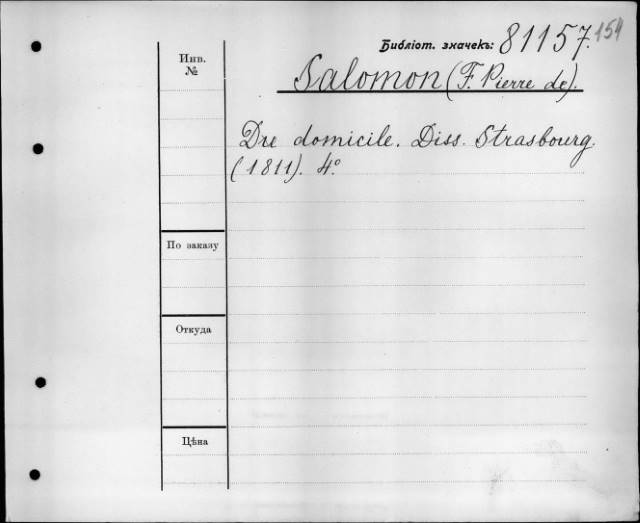 Библіот. значекъ: 81157. 154
Инв.
№
Salomon (F. Pierre de).
Du domicile. Diss. Strasbourg.
(1811). 4º
По заказу
Откуда
Цѣна